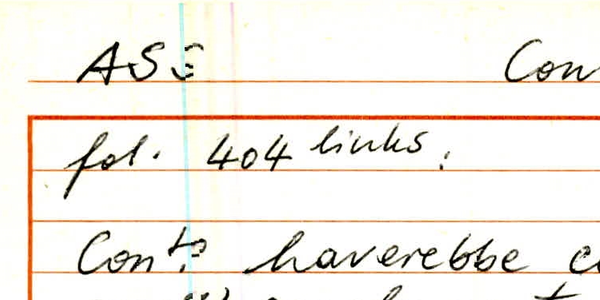 ASE Con
fol. 404 links.
Cont? haverebbe c